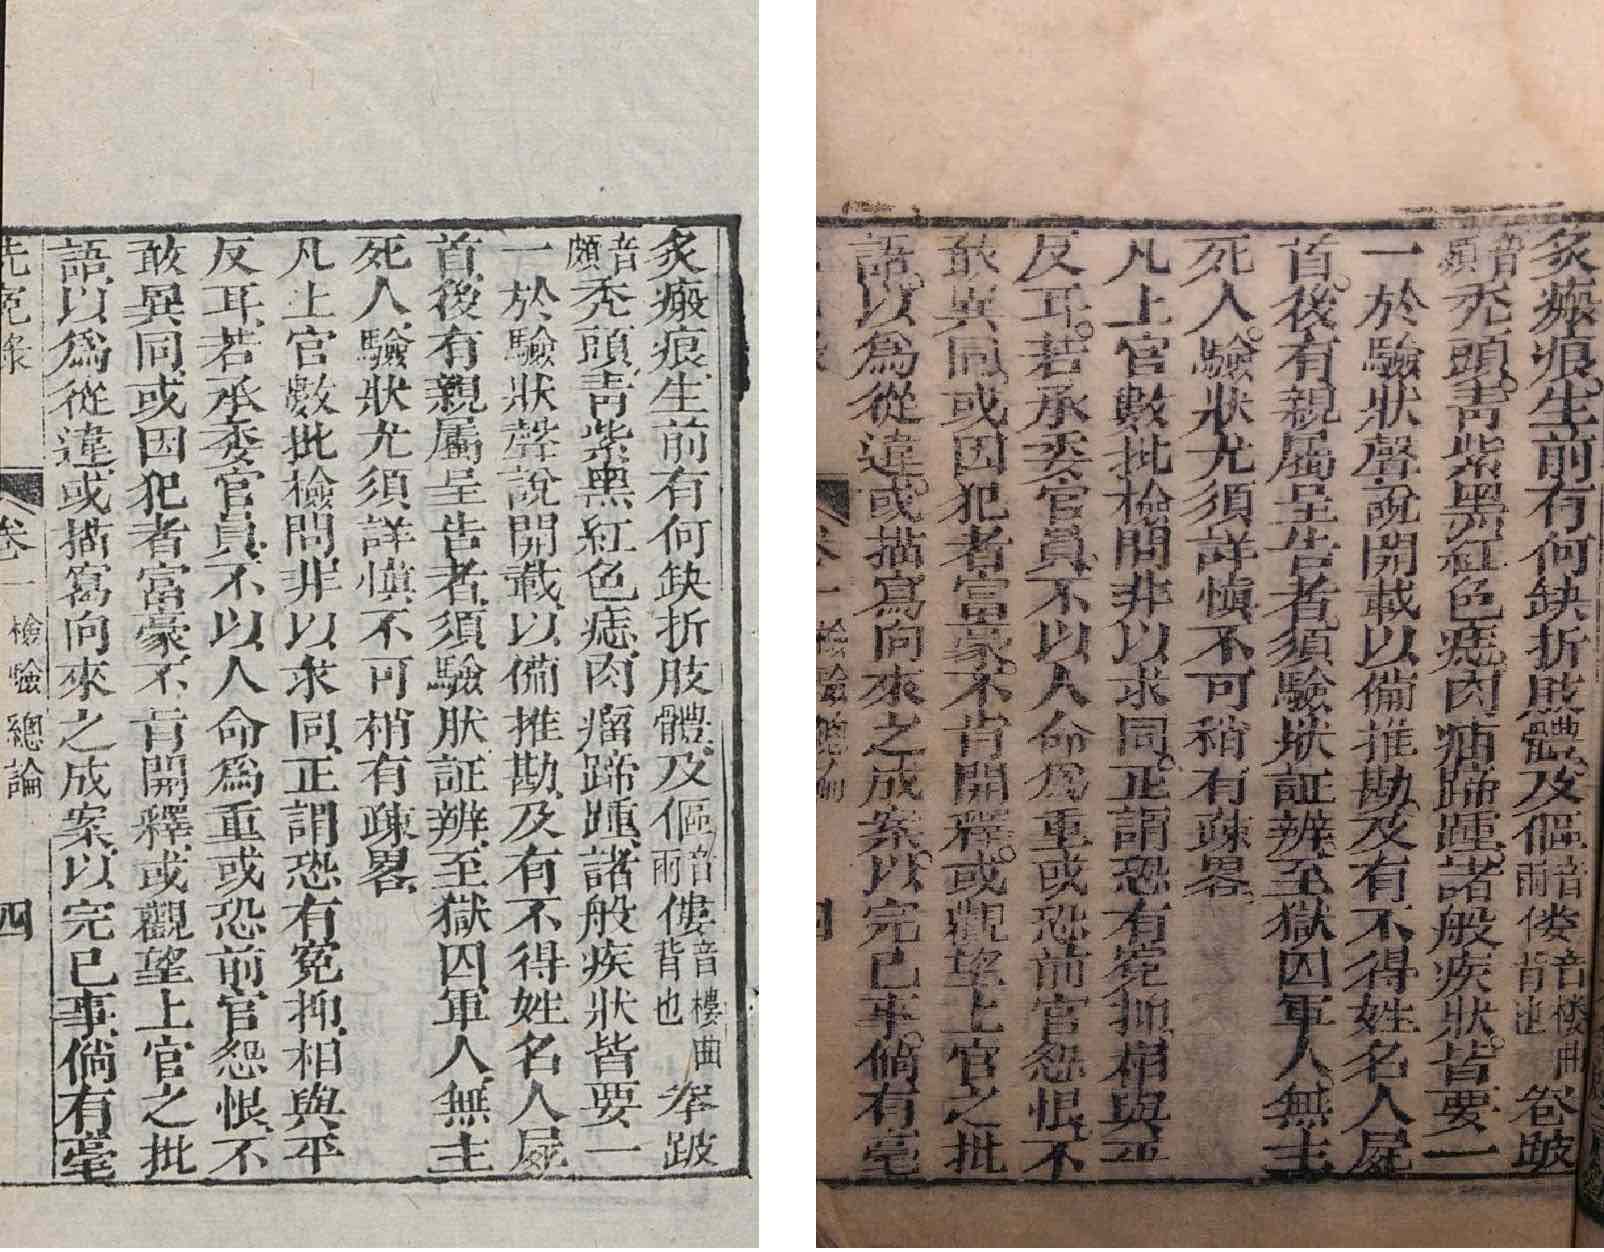 炙瘢痕、生前有何缺折肢體、及傴音雨僂音樓曲背也拳跛
音頗禿頭、青紫黑紅色痣、肉瘤蹄踵、諸般疾狀皆要一
一於驗狀聲說開載、以備推勘、及有不得姓名人屍
首、後有親屬呈告者、須驗狀証辨、至獄囚軍人、無主
死人、驗狀尤須詳慎、不可稍有疎畧、
凡上官數批檢問、非以求同、正謂恐有寃抑、相與平
反耳、若承委官員、不以人命爲重、或恐前官怨恨、不
敢異同、或因犯者富豪、不肯開釋、或觀望上官之批
語、以爲從違、或描寫向來之成案、以完已事、倘有毫
洗寃錄 卷一 檢驗總論 四
炙瘢痕。生前有何缺折肢體、及傴音雨僂音樓曲背也卷跛
音頗禿頭。青紫黑紅色痣。肉瘤蹄踵。諸般疾狀。皆要一
一於驗狀聲說開載以備推勘、及有不得姓名人屍
首。後有親屬呈告者、須驗狀証辨。至獄囚軍人。無主
死人。驗狀尤須詳慎、不可稍有疎畧、
凡上官數批檢問非以求同。正謂恐有寃抑、相與平
反耳。若承委官員、不以人命爲重或恐前官怨恨、不
敢異同。或因犯者富豪。不肯開釋。或觀望上官之批
語。以爲從違。或描寫向來之成案。以完已事。倘有毫
卷一 檢驗總論 四